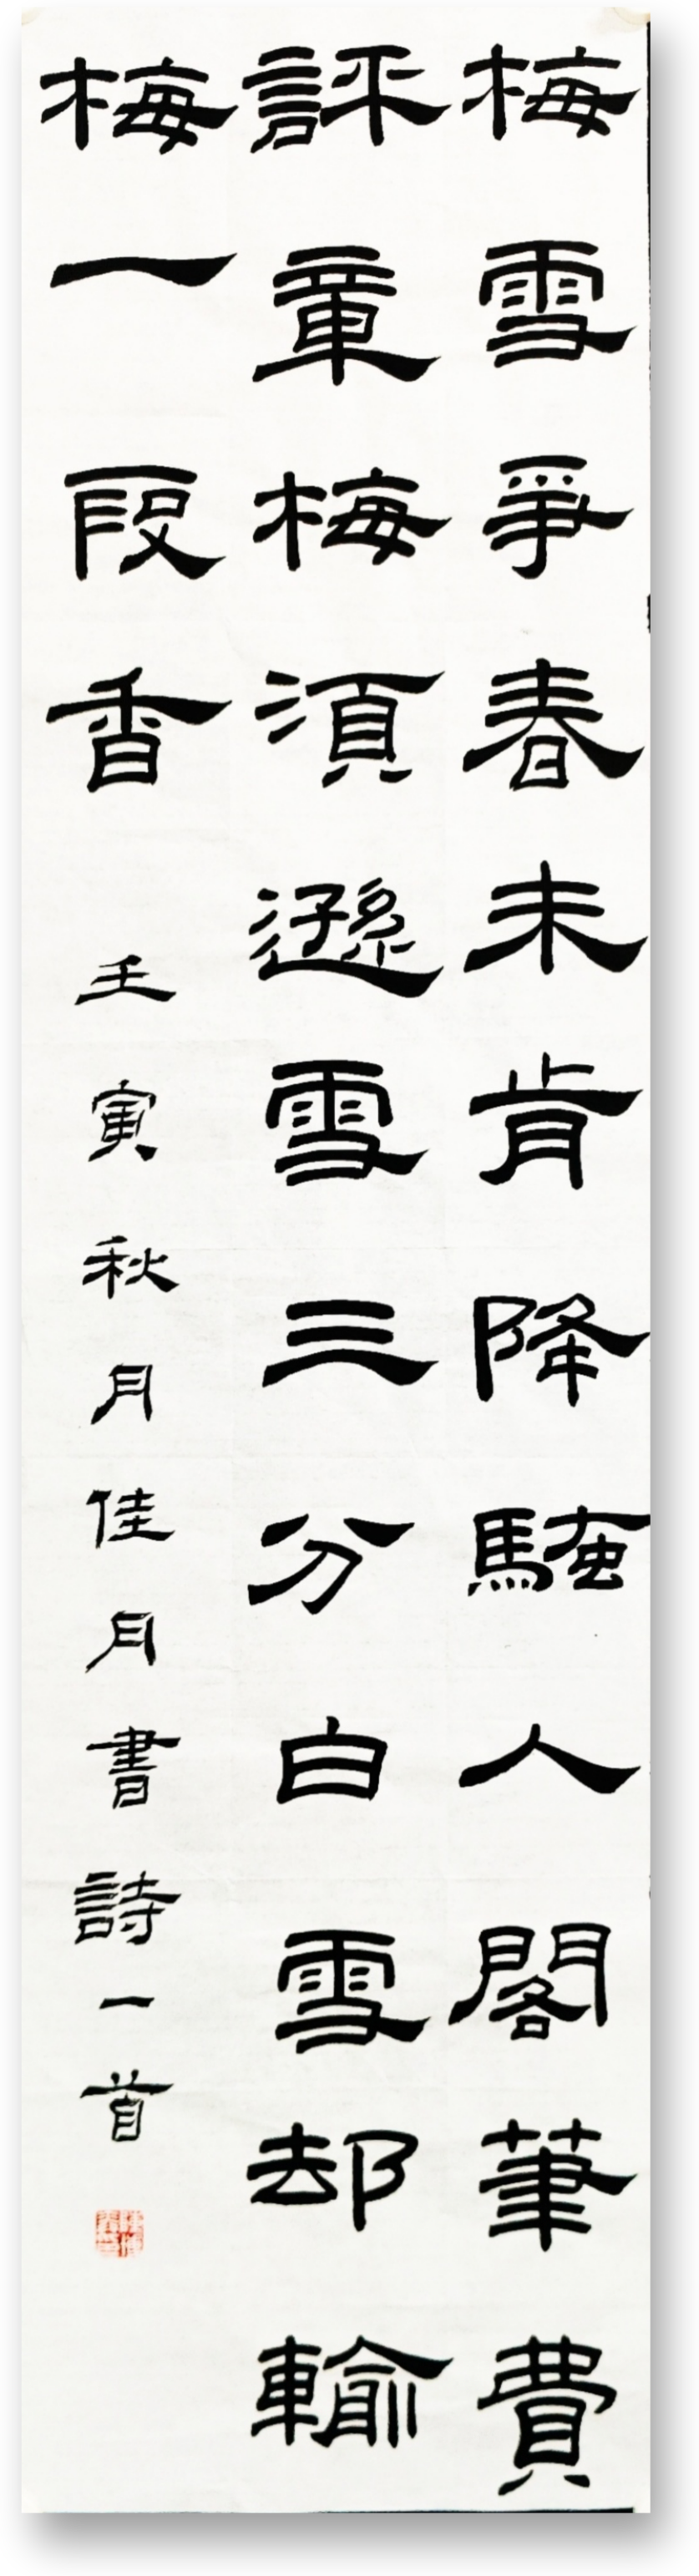 梅雪爭春未肯降騷人閣筆費
評章梅須遜雪三分白雪却輸
梅一段香
壬寅秋月佳月書詩一首